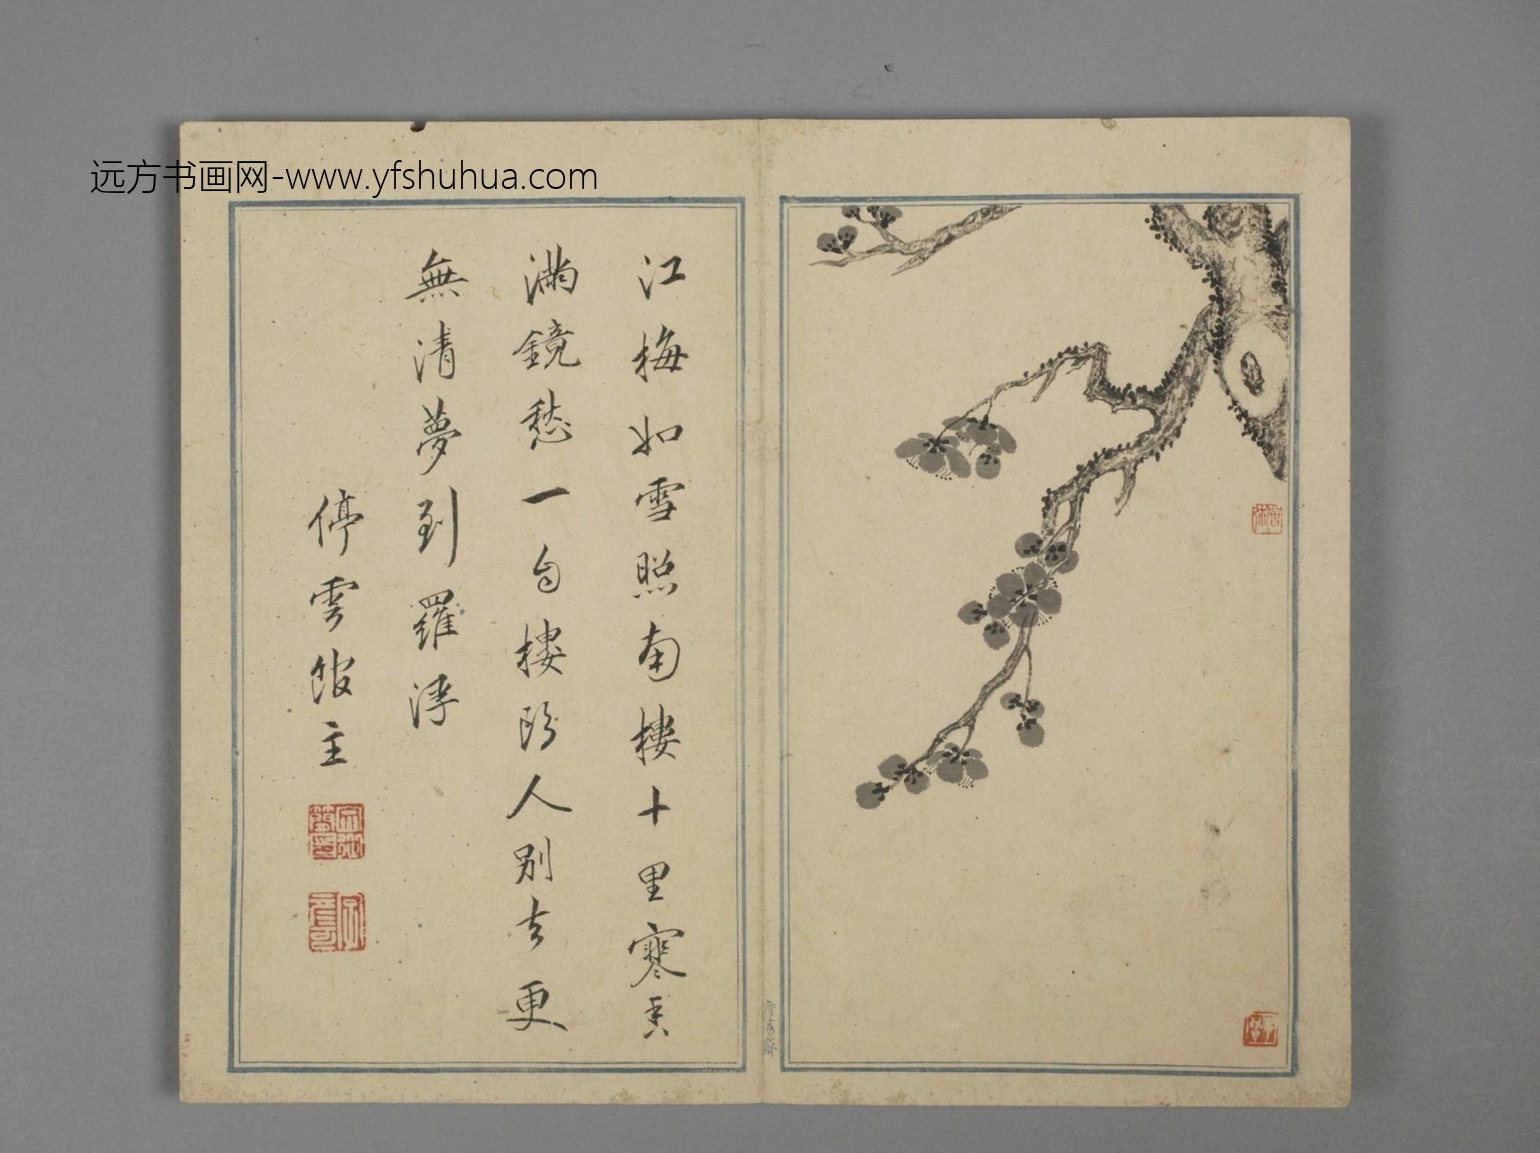 远方书画网-www.yfshuhua.com
江梅如雪照南樓十里寒香
滿鏡愁一自樓頭人別去更
無清夢到羅浮
停雲館主